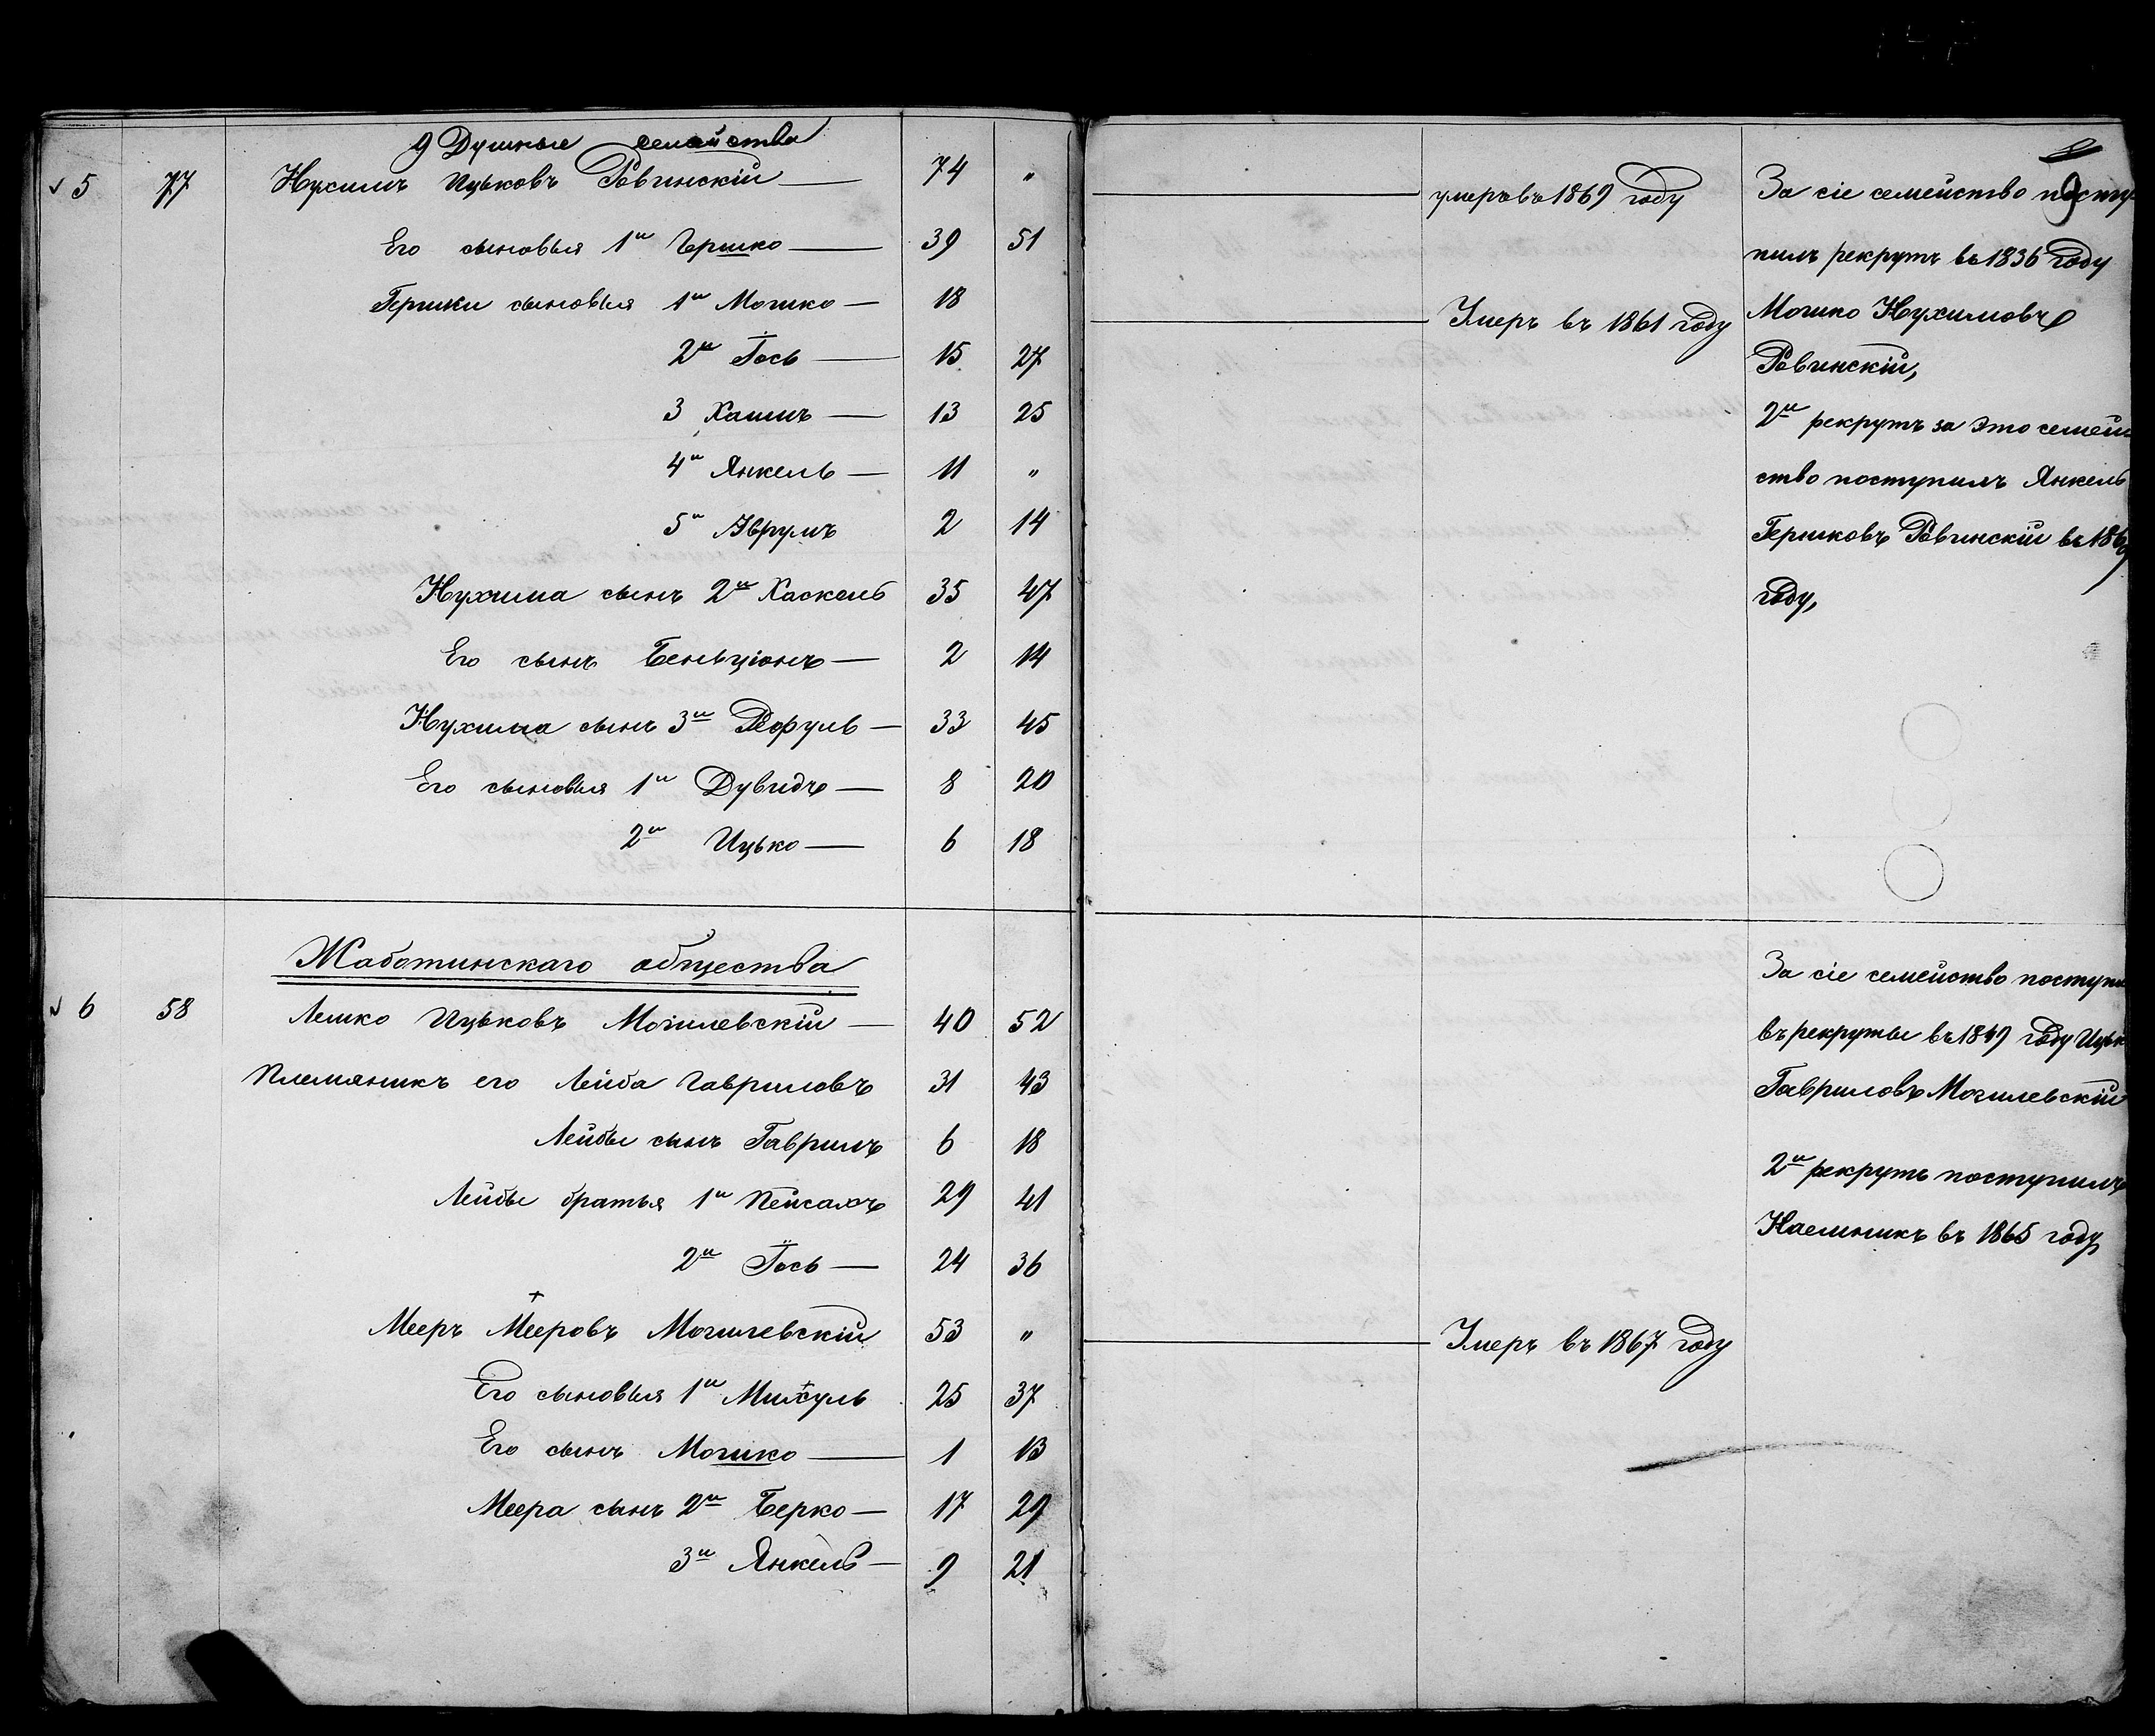 9 Душные семейства
5 77 Нухимъ Ицьковъ Ровинскій — 74 "
Его сыновья 1й Гершко — 39 51
Гершки сыновья 1й Мошко — 18
2й Іось — 15 27
3 Хаимъ — 13 25
4й Янкель — 11 "
5й Аврумъ 2 14
Нухима сынъ 2й Хаскель 35 47
Его сынъ Беньціонъ — 2 14
Нухима сынъ 3й Рефуль — 33 45
Его сыновья 1й Дувидъ — 8 20
2й Ицько — 6 18
Жаботинскаго общества
6 58 Лешко Ицьковъ Могилевскій — 40 52
Племяникъ его Лейба Гавриловъ 31 43
Лейбы сынъ Гаврилъ 6 18
Лейбы братья 1й Пейсахъ 29 41
2й Іось — 24 36
Мееръ Мееровъ Могилевскій 53 "
Его сыновья 1й Михуль 25 37
Его сынъ Мошко — 1 13
Меера сынъ 2й Берко — 17 29
3й Янкель — 9 21
умеръ въ 1869 году
Умеръ въ 1861 году
Умеръ въ 1867 году
9
За сіе семейство посту
пилъ рекрутъ въ 1836 году
Мошко Нухимовъ
Ровинскій,
2й рекрутъ за это семей
ство поступилъ Янкель
Гершковъ Ровинскій въ 1869
году,
За сіе семейство поступи
въ рекруты въ 1849 году Ицьк
Гавриловъ Могилевскій
2й рекрутъ поступилъ
Наемникъ въ 1865 году